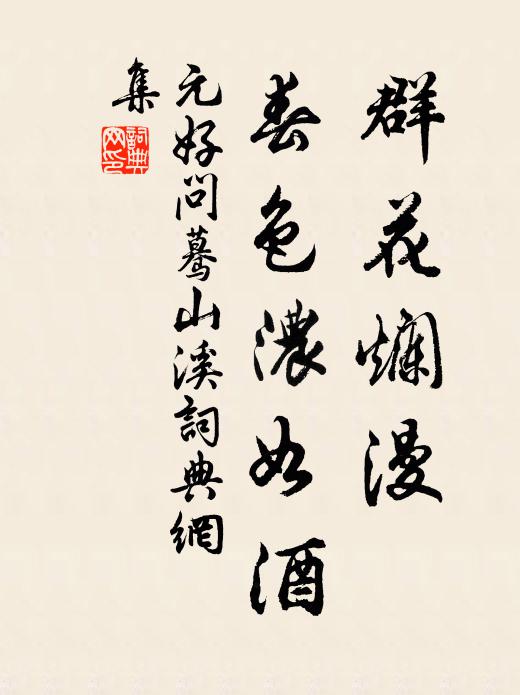 群花爛漫
春色濃如酒
元好問驀山溪詞典網
集
詞典網印